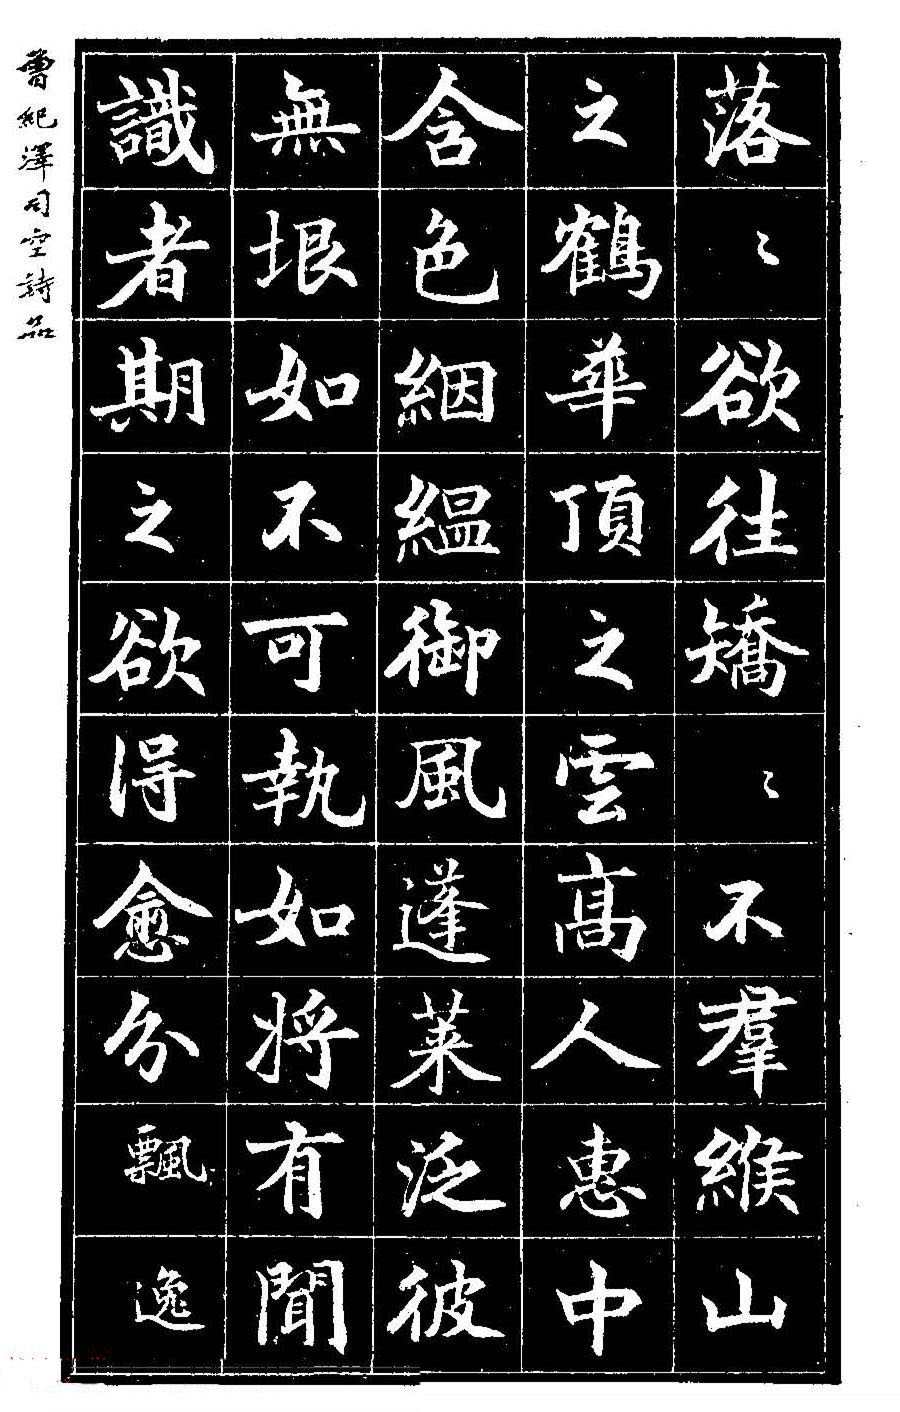 落〻欲往矯〻不羣緱山
之鶴華頂之雲高人惠中
含色絪緼御風蓬萊泛彼
無垠如不可執如將有聞
識者期之欲得愈分飄逸
曾紀澤司空詩品